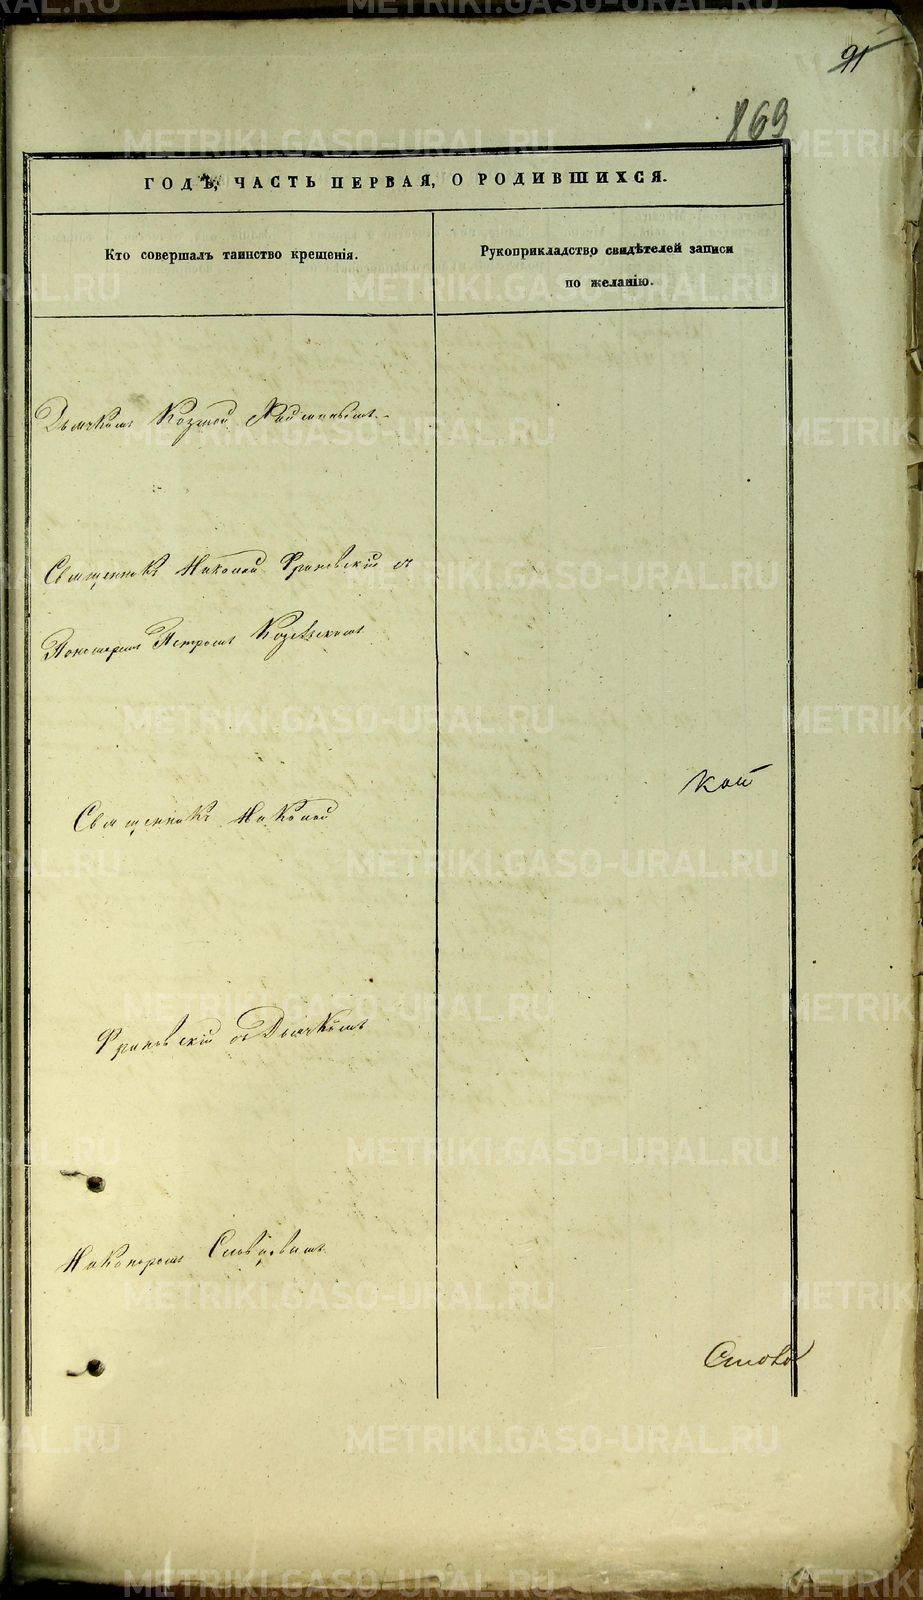 91
869
ГОДЪ, ЧАСТЬ ПЕРВАЯ, О РОДИВШИХСЯ.
Кто совершалъ таинство крещенія.
Рукоприкладство свидѣтелей записи
по желанію.
Дьячкомъ Козмой
Священникъ Николай съ
Пономаремъ Петромъ
кой
Священникъ Николай
съ Дьячкомъ
Никаноромъ
METRIKI.GASO-URAL.RU